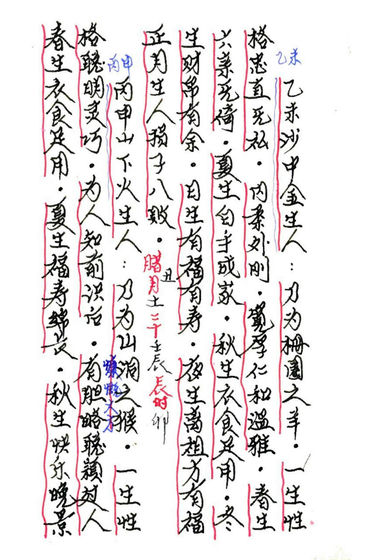 乙未
乙未沙中金生人：乃为栅圈之羊。一生性
格忠直无私。内柔外刚。宽厚仁和温雅。春生
六亲无倚。夏生白手成家。秋生衣食足用。冬
生财帛有余。日生有福有寿。夜生离祖方有福
正月生人损子八败。
丑
腊月土二十壬辰 辰时
卯
丙申
丙申山下火生人：乃为山洞之猴。一生性
慷慨大方
格聪明灵巧。为人知前识后。有胆略聪颖过人
春生衣食足用。夏生福寿绵长。秋生快乐晚景